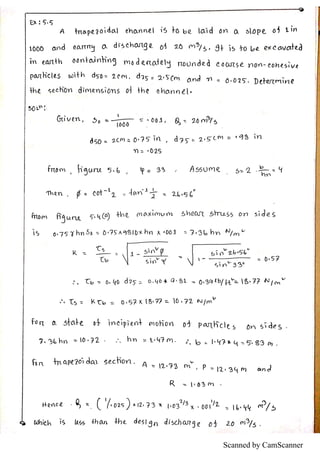 Ex: 5.5
A trapezoidal channel is to be laid on a slope of 1 in
1000 and carry a discharge of 20 m³/s. It is to be excavated
in earth containing moderately rounded coarse non-cohesive
particles with d50 = 2cm, d75 = 2.5cm and n = 0.025. Determine
the section dimensions of the channel.
Solⁿ:
Given, S₀ = 1/1000 = .001, Q = 20 m³/s
d50 = 2cm = 0.75 in, d75 = 2.5cm = .98 in
n = .025
from, figure 5.6, φ = 33 Assume, s = 2 b/hn = 4
Then, φ = cot⁻¹ 2 = tan⁻¹ 1/2 = 26.56°
from figure 5.4(a) the maximum shear stress on sides
is 0.75 γ hn S₀ = 0.75 × 9810 × hn × .001 = 7.36 hn N/m²
K = τs/τb = √(1 - sin²φ/sin²ψ) = √(1 - sin²26.56°/sin²33°) = 0.57
∴ τb = 0.40 d75 = 0.40 × 0.98 = 0.39 lb/ft² = 18.77 N/m²
∴ τs = Kτb = 0.57 × 18.77 = 10.72 N/m²
For a state of incipient motion of particles on sides.
7.36 hn = 10.72 ∴ hn = 1.47 m. ∴ b = 1.47 × 4 = 5.83 m.
for trapezoidal section. A = 12.73 m², P = 12.34 m and
R = 1.03 m.
Hence Q = (1/.025) × 12.73 × 1.03^2/3 × .001^1/2 = 16.44 m³/s
which is less than the design discharge of 20 m³/s.
Scanned by CamScanner